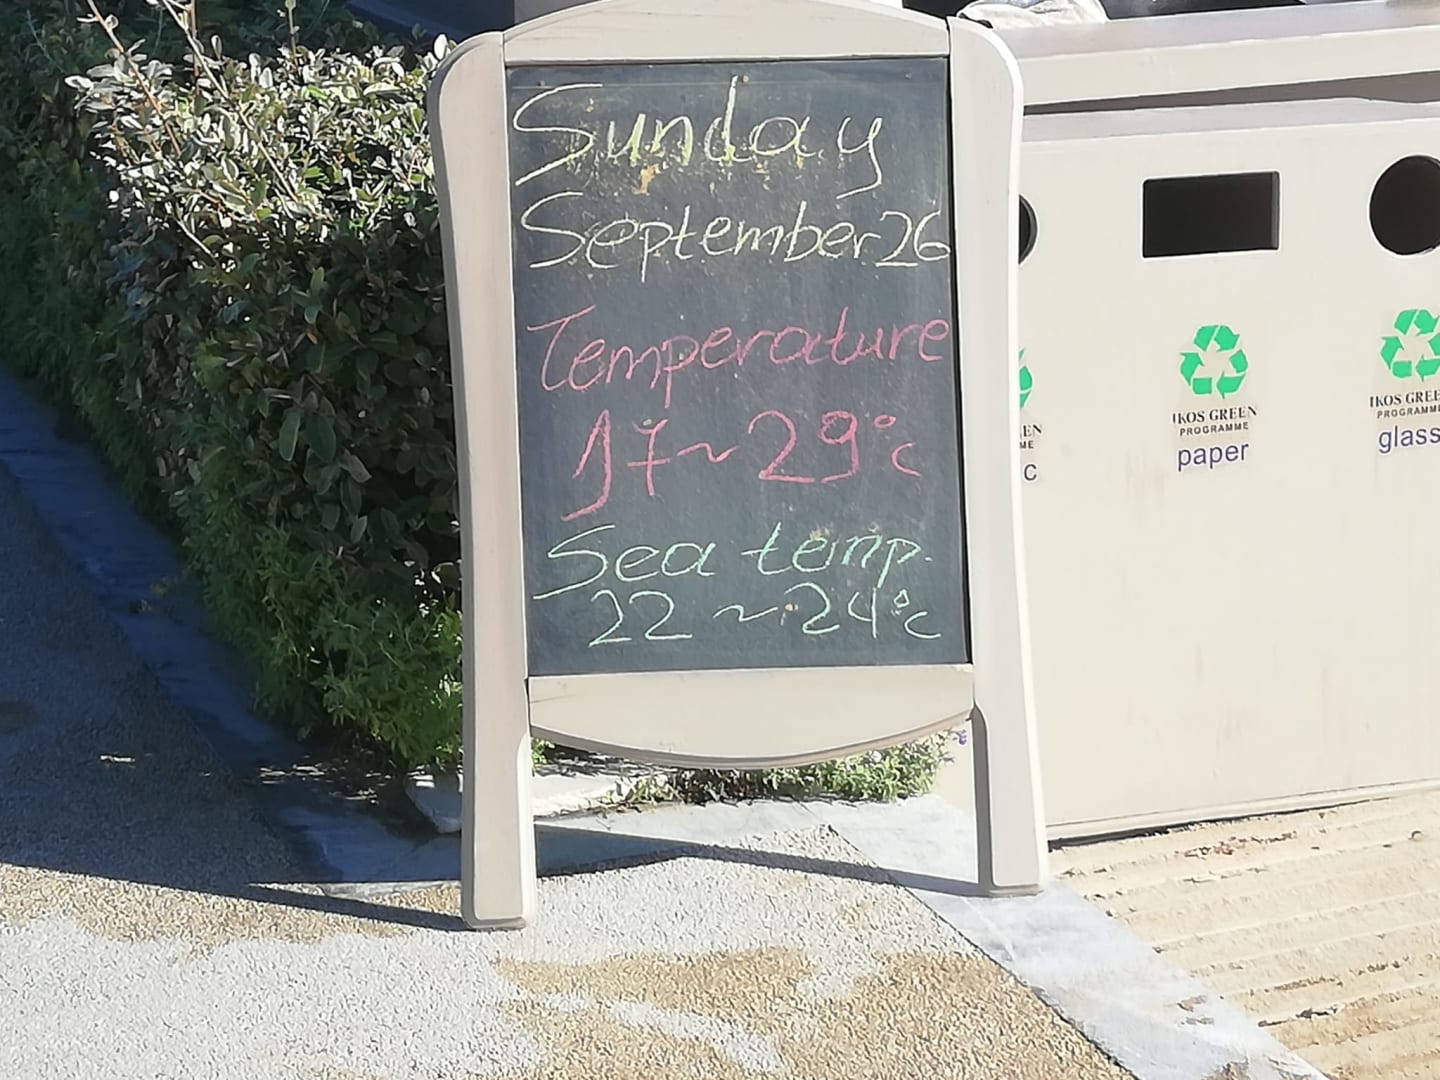 Sunday
September 26
Temperature
17~29°c
Sea temp.
22~24°c
EN
ME
c
IKOS GREEN
PROGRAMME
paper
IKOS GREE
PROGRAMM
glass